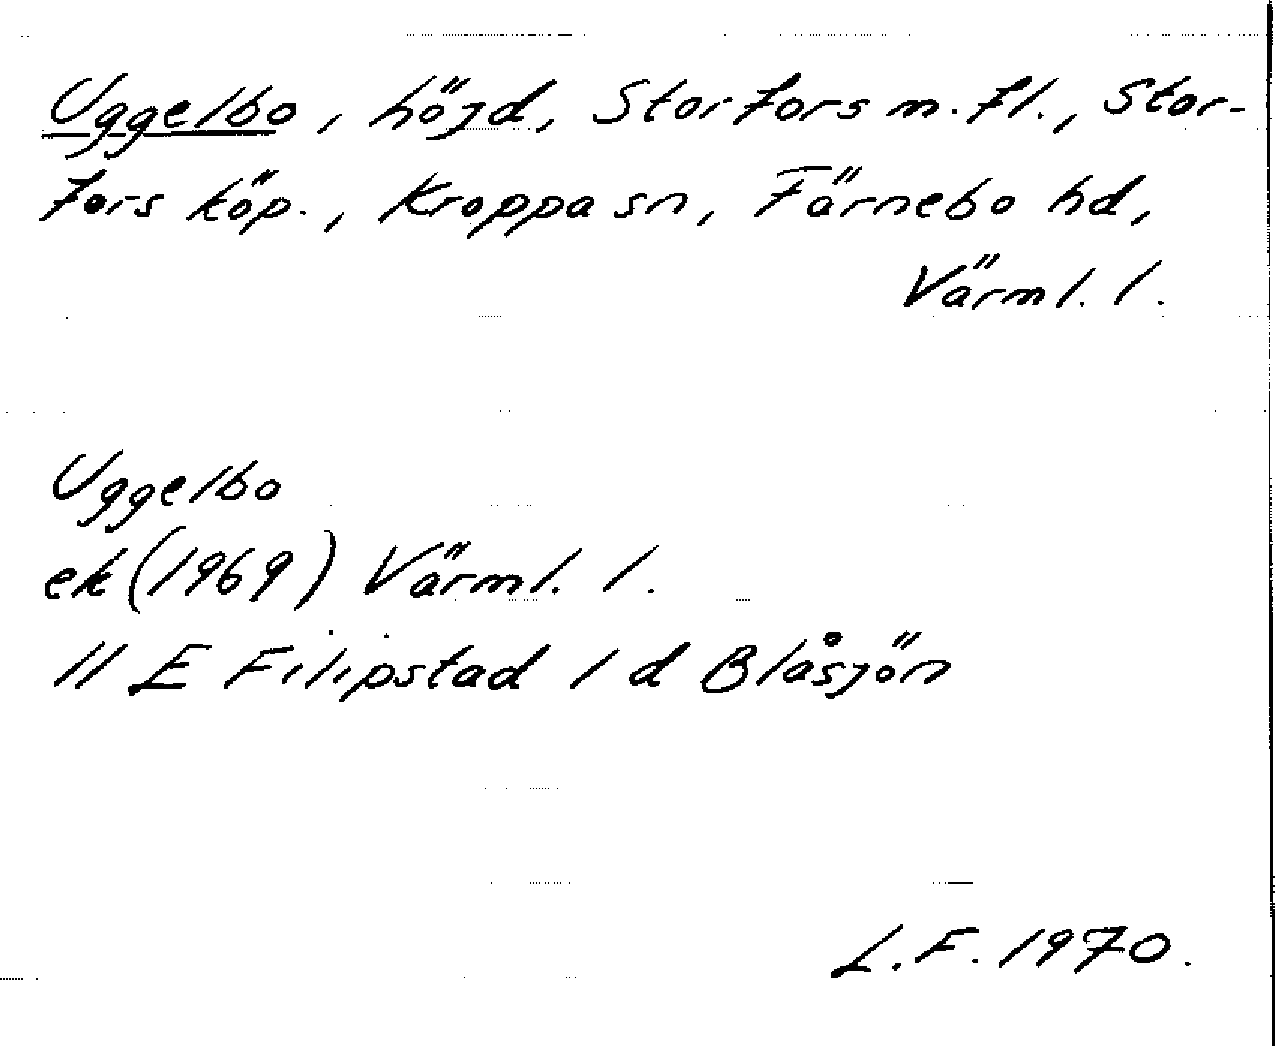 Uggelbo, höjd, Storfors m.fl., Stor-
fors köp., Kroppa sn, Färnebo hd,
Värml. l.
Uggelbo
ek (1969) Värml. l.
11 E Filipstad 1 d Blåsjön
L.F. 1970.